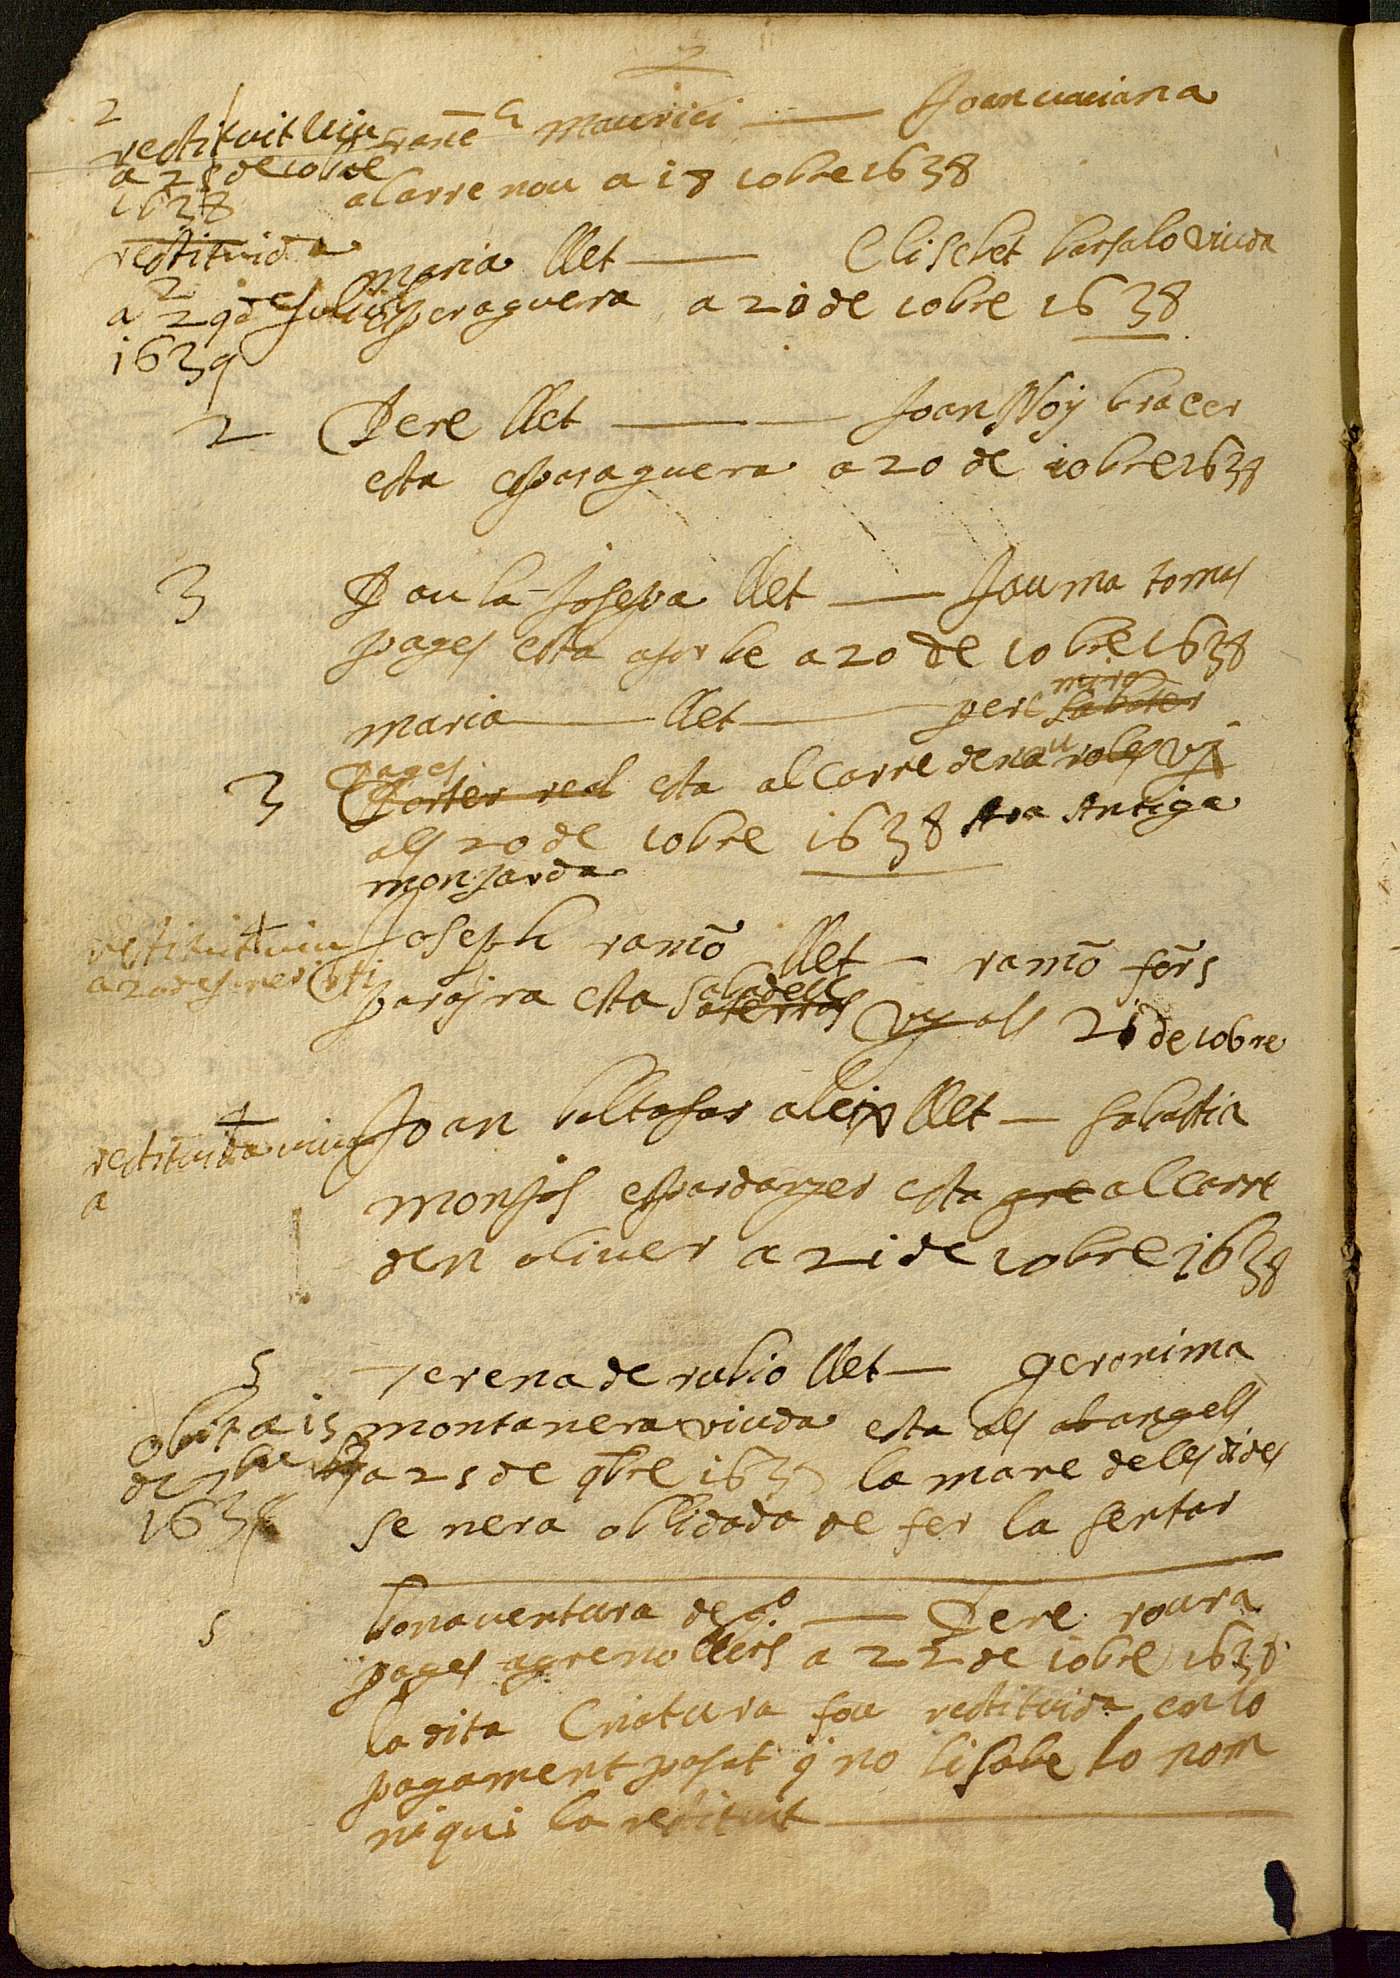 2
restituit viu
a 25 de 10bre
1638
franc maurici — Joan
al carre nou a 18 10bre 1638
restituida
2
a 29 de Juliol
1639
maria llet — Elisebet barsalo viuda
esperaguera a 20 de 10bre 1638
2 Pere llet — Joan Noy bracer
esta esparaguera a 20 de 10bre 1638
3 Paula Josepa llet — Jauma tomas
pages esta a a 20 de 10bre 1638
miro
maria — llet — pere sabater
pages
3 Porter real esta al carre de
als 20 de 10bre 1638 Ara Antiga
monjarda
4
restituit viu
a 20 de giner
Joseph ramō llet — ramō fōrs
sabadell
parayra esta als 21 de 10bre
4
restituida viu
a
Joan baltasar aleix llet — sabastia
monjos espardanyer esta al carre
den oliver a 21 de 10bre 1638
5 Terena de rubio llet — Geronima
obit a 15
de
1638
montanera viuda esta als angels
a 25 de 9bre 1637 la mare de les dides
se nera oblidada de fer la sentar
5 bonaventura de — Pere roura
pages a grenollers a 22 de 10bre 1638
la dita Criatura fou restituida en lo
pagament pasat q no li sabe lo nom
ni qui la restituit —